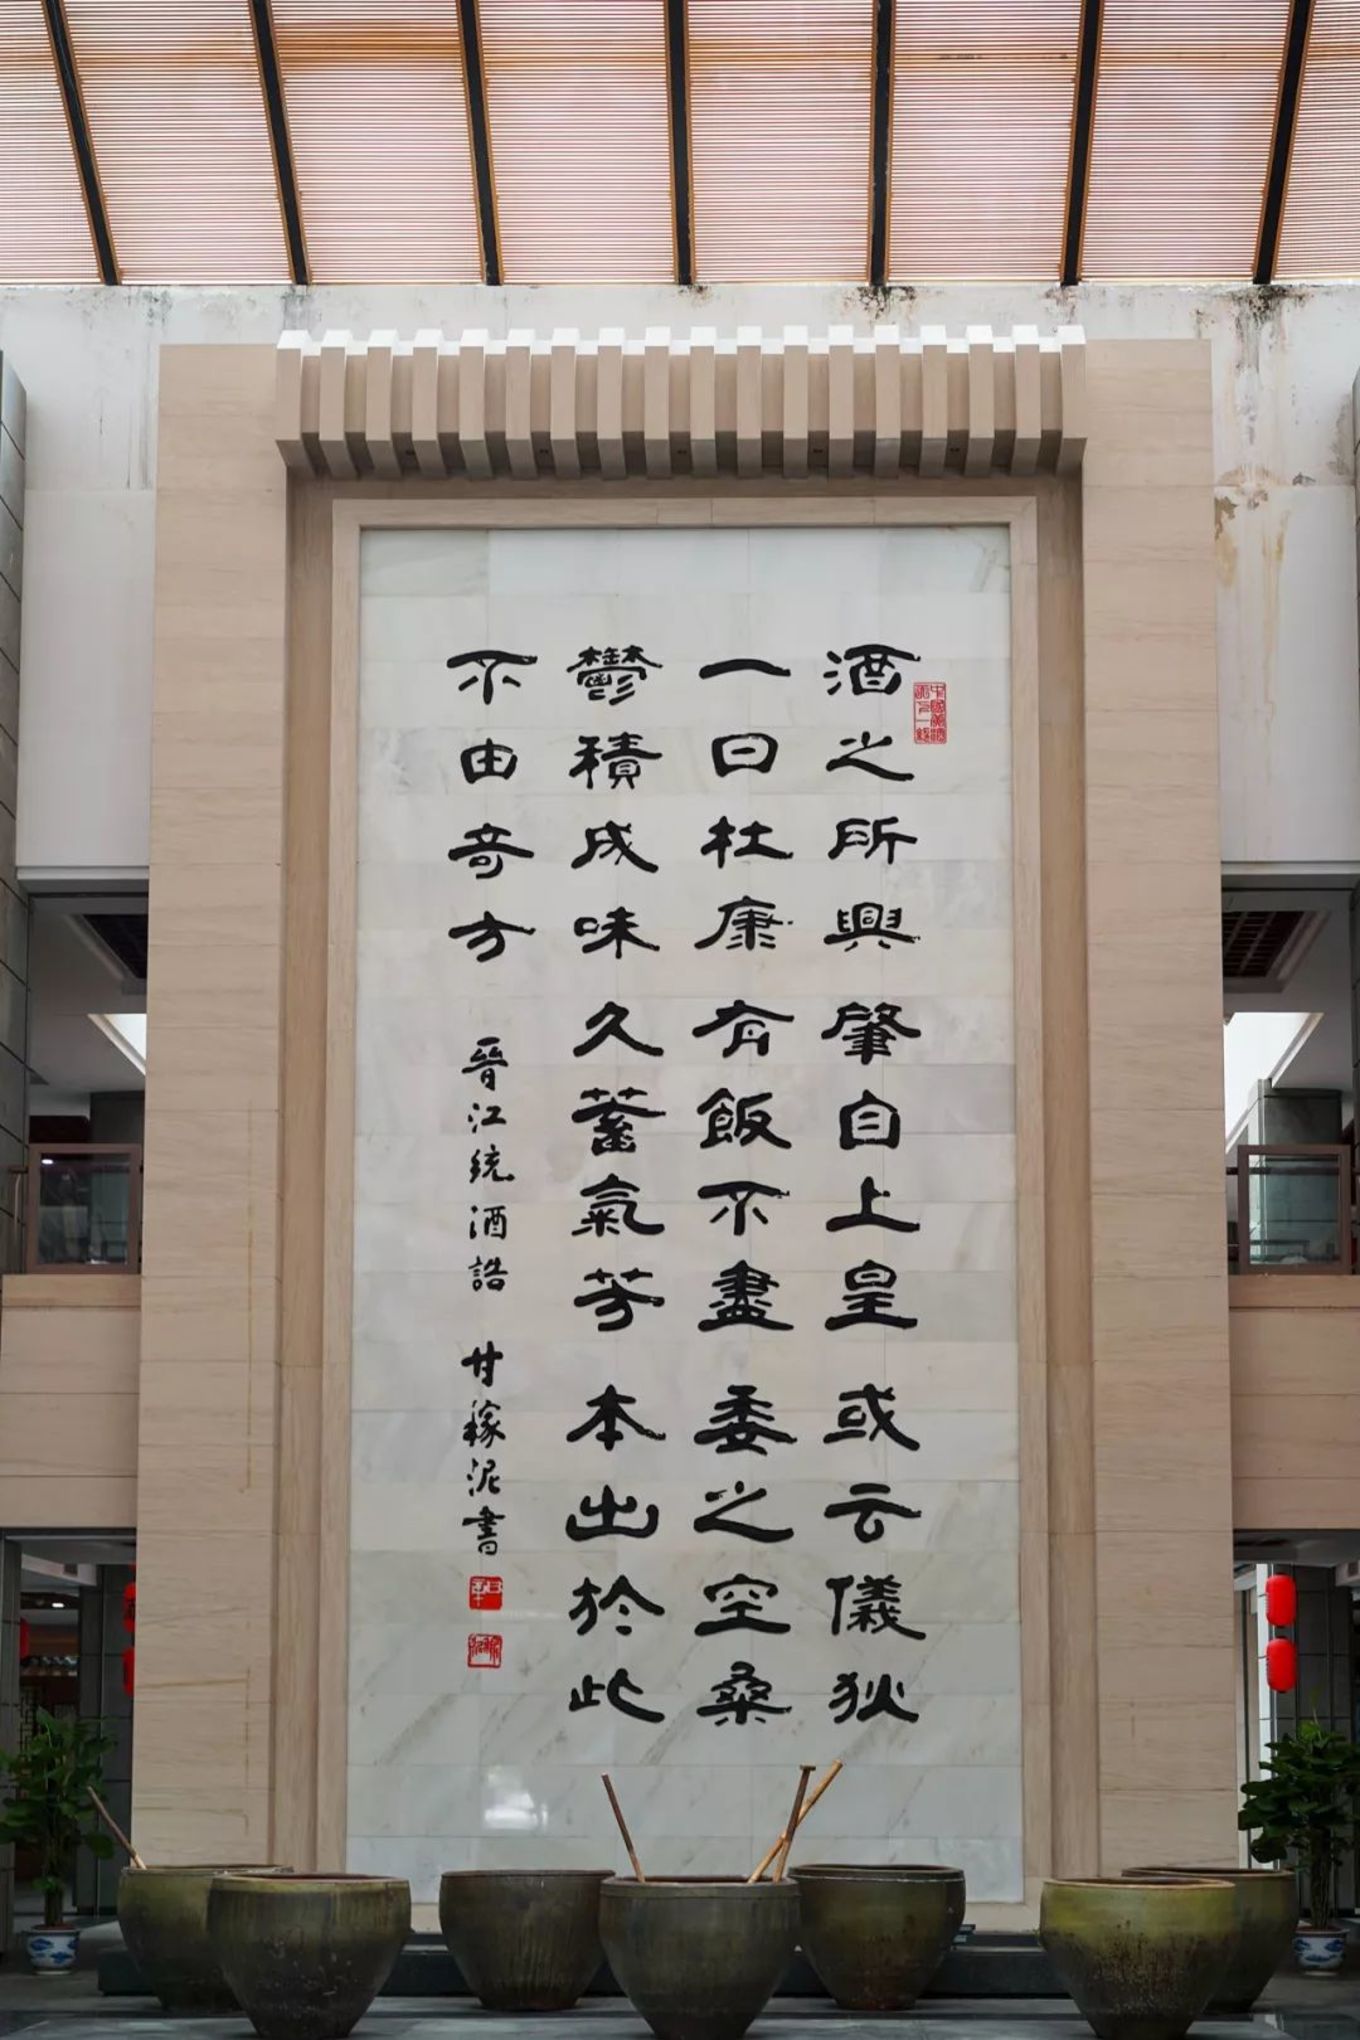 酒之所興肇自上皇或云儀狄
一曰杜康有飯不盡委之空桑
鬱積成味久蓄氣芳本出於此
不由奇方 晉江統酒誥 甘稼泥書